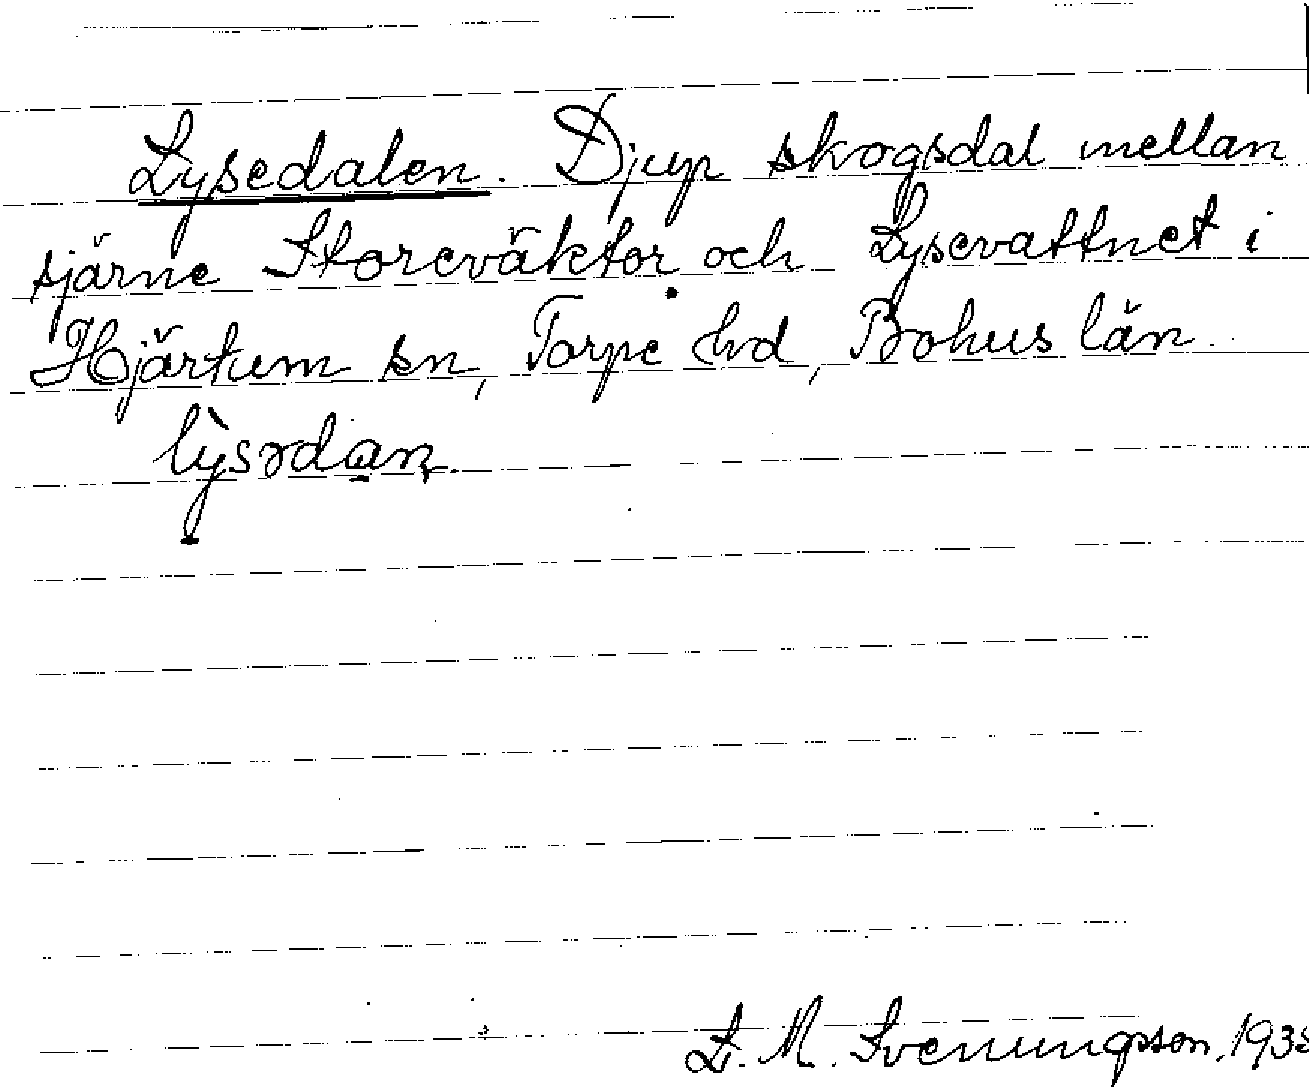 Lysedalen. Djup skogsdal mellan
sjärne Storeväktor och Lysevattnet i
Hjärtum sn, Torpe hd, Bohus län.
L. M. Svenungsson.